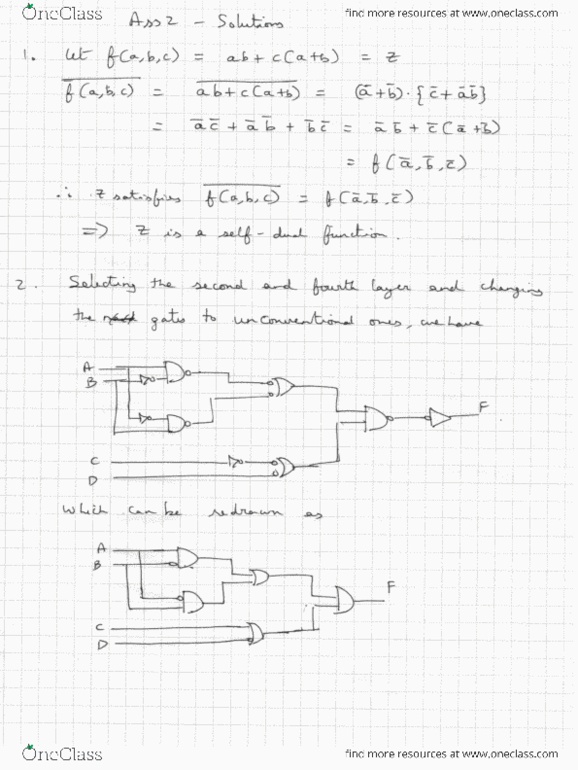 OneClass find more resources at www.oneclass.com
Ass 2 - Solutions
1. Let f(a,b,c) = ab + c(a+b) = z
f̅(̅a̅,̅b̅,̅c̅)̅ = a̅b̅ ̅+̅ ̅c̅(̅a̅+̅b̅)̅ = (a̅+b̅)·{c̅+a̅b̅}
= a̅c̅ + a̅b̅ + b̅c̅ = a̅b̅ + c̅(a̅+b̅)
= f(a̅,b̅,c̅)
∴ z satisfies f̅(̅a̅,̅b̅,̅c̅)̅ = f(a̅,b̅,c̅)
=> z is a self-dual function.
2. Selecting the second and fourth layer and changing
the gates to unconventional ones, we have
A
B
F
C
D
which can be redrawn as
A
B
F
C
D
OneClass find more resources at www.oneclass.com